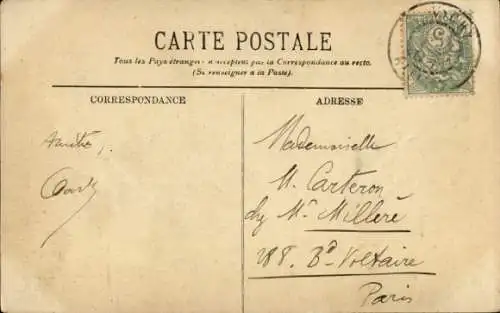 CARTE POSTALE
Tous les Pays étrangers n'acceptent pas la Correspondance au recto.
(Se renseigner à la Poste).
CORRESPONDANCE
ADRESSE
Mademoiselle
M. Carteron
chy Mr Milleré
288. Bd Voltaire
Paris